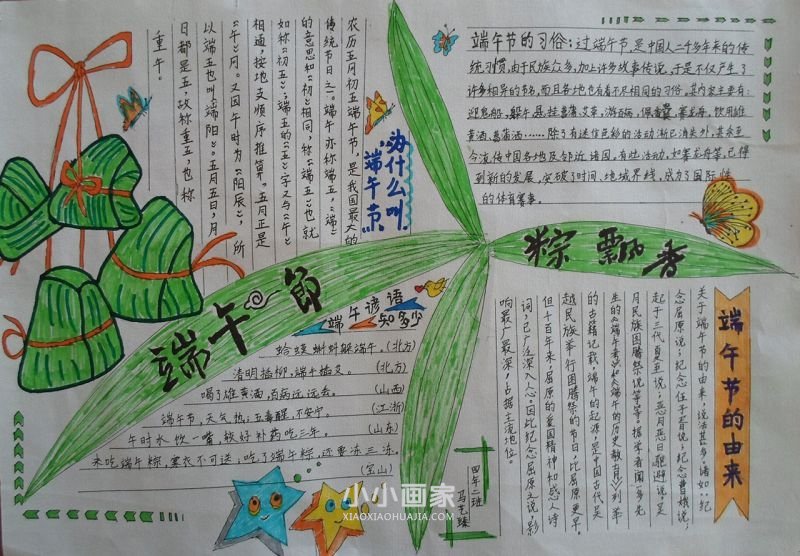 端午节
粽飘香
为什么叫
"端午节"
农历五月初五端午节，是我国最大的
传统节日之一。端午亦称端五，"端"
的意思和"初"相同，称"端五"也就
如称"初五"；端五的"五"字又与"午"
相通，按地支顺序推算，五月正是
"午"月。又因午时为"阳辰"，所
以端五也叫"端阳"。五月五日，月
日都是五，故称重五，也称
重午。
端午节的习俗：过端午节，是中国人二千多年来的传
统习惯，由于民族众多，加上许多故事传说，于是不仅产生了
许多相异的节名，而且各地也有着不尽相同的习俗。其内容主要有：
迎鬼船，躲午，悬挂菖蒲艾草，游百病，佩香囊，赛龙舟，饮用雄
黄酒、菖蒲酒……除了有迷信色彩的活动渐已消失外，其余至
今流传中国各地及邻近诸国。有些活动，如赛龙舟等，已得
到新的发展，突破了时间、地域界线，成为了国际性
的体育赛事。
端午谚语
知多少
蛤蟆蝌蚪躲端午。(北方)
清明插柳，端午插艾。(北方)
喝了雄黄酒，百病远远丢。(山西)
端午节，天气热；五毒醒，不安宁。(江浙)
午时水饮一嘴，较好补药吃三年。(山东)
未吃端午粽，寒衣不可送；吃了端午粽，还要冻三冻。
(宝山)
端午节的由来
关于端午节的由来，说法甚多，诸如：纪
念屈原说；纪念伍子胥说；纪念曹娥说；
起于三代夏至说；恶月恶日驱避说，吴
月民族图腾祭说等等。据学者闻一多先
生的《端午考》和《端午的历史教育》列举
的古籍记载，端午的起源，是中国古代吴
越民族举行图腾祭的节日，比屈原更早。
但千百年来，屈原的爱国精神和感人诗
词，已广泛深入人心。因此，纪念屈原之说，影
响最广最深，占据主流地位。
四年二班
小小画家
XIAOXIAOHUAJIA.COM